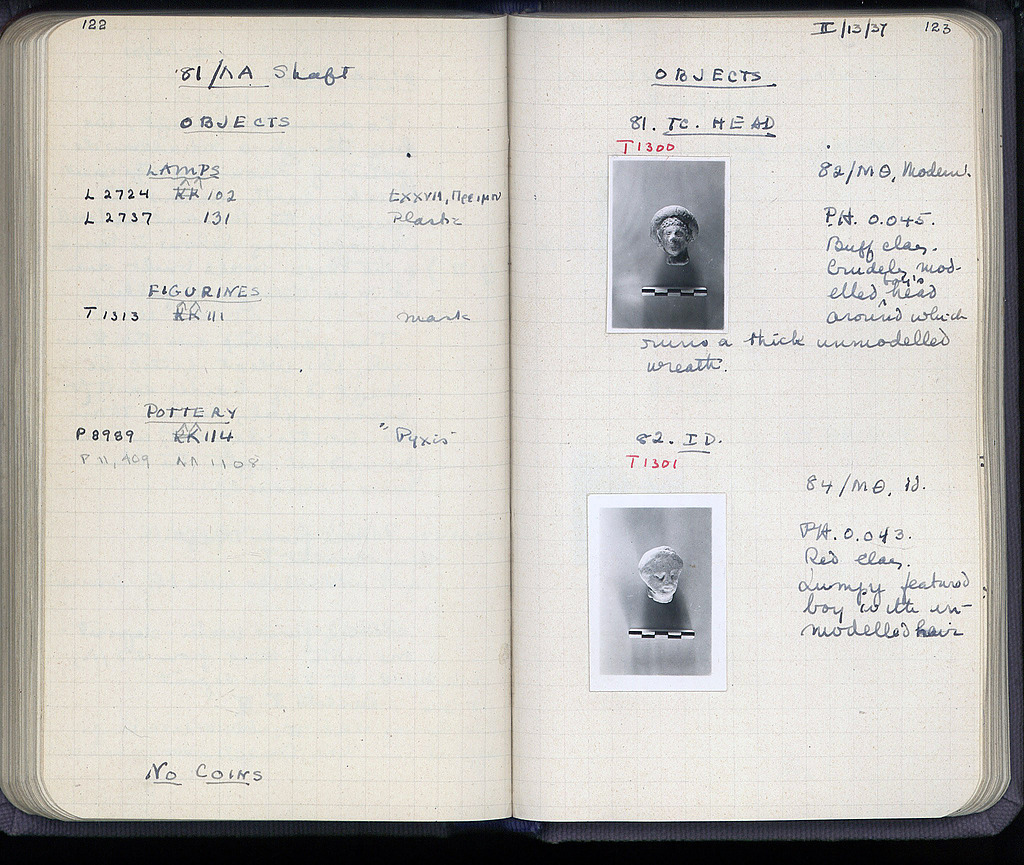 122
81/ΛΑ Shaft
OBJECTS
LAMPS
L 2724 ΛΛ 102 LXXVII, Πρειμου
L 2737 131 Plastic
FIGURINES
T 1313 ΛΛ 111 mask
POTTERY
P 8989 ΛΛ 114 "Pyxis"
P 11,409 ΛΛ 1108
No Coins
II/13/37 123
OBJECTS
81. TC. HEAD
T1300
82/ΜΘ, Modern.
P.H. 0.045.
Buff clay.
Crudely mod-
elled boy's head
around which
runs a thick unmodelled
wreath.
82. ID.
T1301
84/ΜΘ, id.
P.H. 0.043.
Red clay.
Lumpy featured
boy with un-
modelled hair